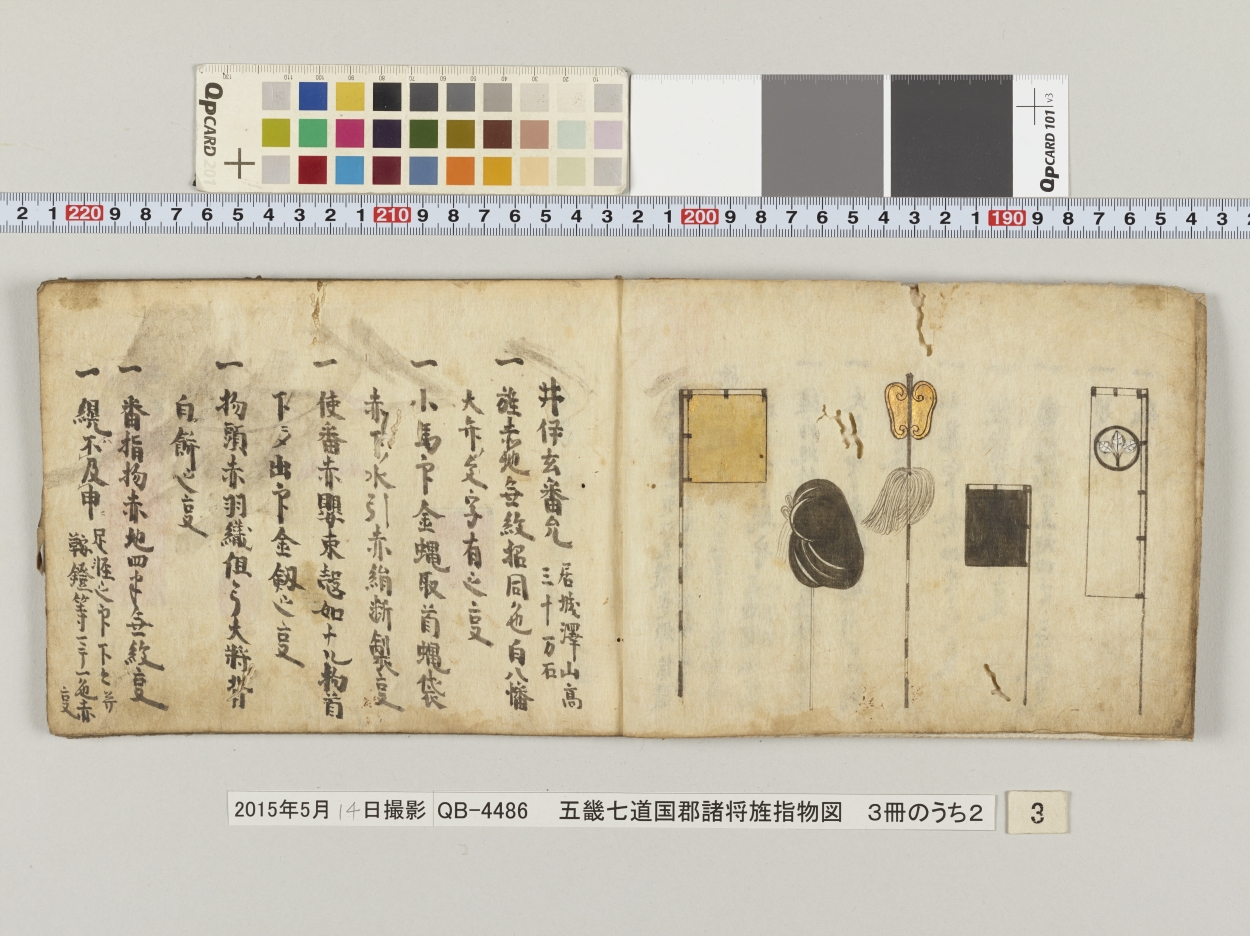 QPCARD 201
QPCARD 101 v3
2 1 220 9 8 7 6 5 4 3 2 1 210 9 8 7 6 5 4 3 2 1 200 9 8 7 6 5 4 3 2 1 190 9 8 7 6 5 4 3
井伊玄番允
居城澤山高
三十万石
一 旌赤地無紋招同色白八幡
大弁定字有之叓
一 小馬印金蝿取首蝿袋
赤下水引赤絹断製叓
一 使番赤
下〆出印金釼之叓
一 物頭赤羽織但シ大将
白餅之叓
一 番指物赤地四半無紋叓
一 縨不及申
鞍鐙等三十一色赤
叓
2015年5月14日撮影 QB-4486 五畿七道国郡諸将旌指物図 3冊のうち2
3